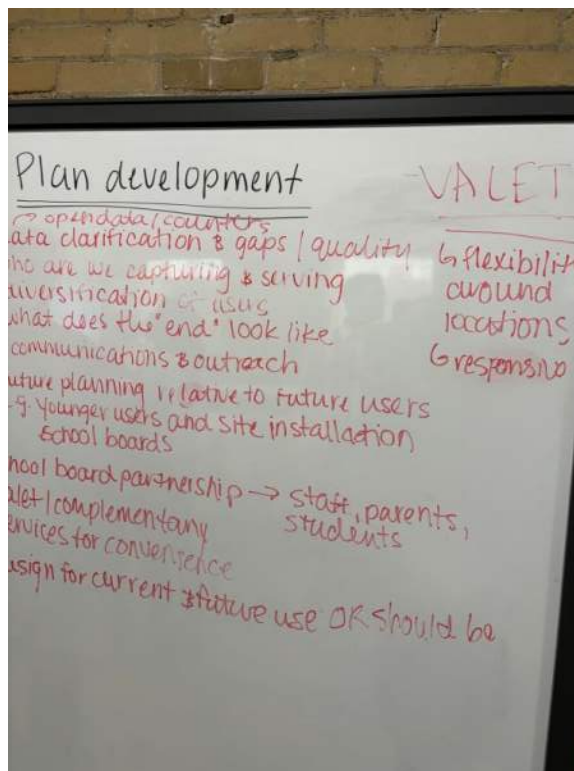 Plan development
→ opendata/counters
ata clarification & gaps / quality
ho are we capturing & serving
iversification of users
what does the "end" look like
communications & outreach
uture planning relative to future users
.g. younger users and site installation
school boards
hool board partnership → staff, parents,
students
alet/complementany
ervices for convenience
esign for current & future use OR should be
VALET
↳ flexibilit
around
locations
↳ responsive